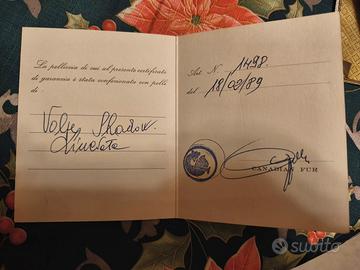 La pellicceria di cui al presente certificato
di garanzia è stata confezionata con pelli
di:
Volpe Shadow.
Lincéata
Art. N. 1498.
del 18/02/89
CANADIAN FUR
subito